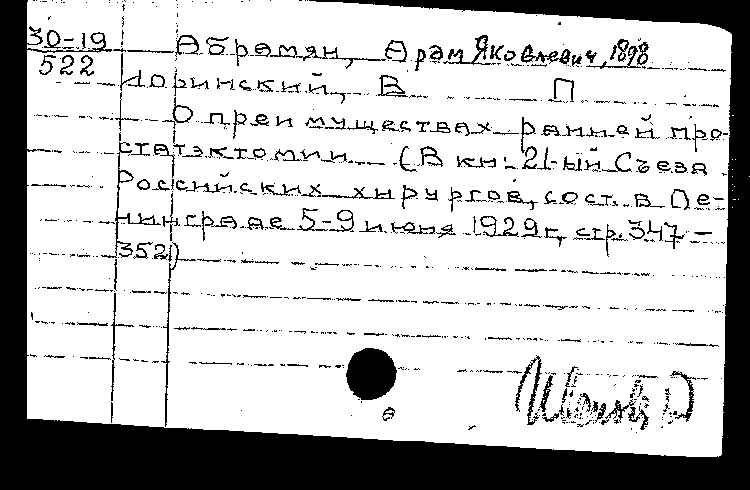 30-19 Абрамян, Арам Яковлевич, 1898
522
Доринский, В П
О преимуществах ранней про-
статэктомии (В кн: 21-ый Съезд
Российских хирургов, сост. в Ле-
нинграде 5-9 июня 1929 г, стр. 347-
352)